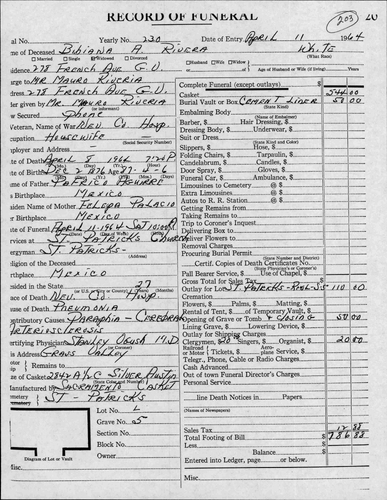 RECORD OF FUNERAL
203
al No. Yearly No. 230 Date of Entry April 11 1964
me of Deceased Bibiana A. Rivera White
Married Single Widowed Divorced Husband Wife Widow (What Race)
sidence 278 French Ave G.V. Age of Husband or Wife (if living) Years
rge to Mr Mauro Riveria
dress 278 French Ave G.V.
der given by Mr. Mauro Riveria
w Secured Phone
Veteran, Name of War Nev. Co. Hosp.
cupation Housewife
(Social Security Number)
ployer and Address
te of Death April 8 1964
te of Birth Dec 2 1876
me of Father
s Birthplace Mexico
iden Name of Mother Palacio
r Birthplace Mexico
te of Funeral April 11-1964 Sat 10:00 A
rvices at St-Patricks Church
ergyman St-Patricks-
(Address)
ligion of the Deceased
rthplace Mexico
sided in the State 37
ace of Death Nev. Co Hosp.
use of Death Pneumonia
ntributory Causes - Cerebral
Arteriosclerosis
rtifying Physician Stanley M.D
is Address Grass Valley
Remains to
ze of Casket Silver Austin
anufactured by Sacramento Casket
metery St-Patricks
Lot No. L
Grave No. 5
Section No.
Block No.
Owner
Diagram of Lot or Vault
isc.
Complete Funeral (except outlays) $
Casket 544.00
Burial Vault or Box Cement Liner 58 00
(State Kind)
Embalming Body
(Name of Embalmer)
Barber, $ Hair Dressing, $
Dressing Body, $ Underwear, $
Suit or Dress
(State Kind and Color)
Slippers, $ Hose, $
Folding Chairs, $ Tarpaulin, $
Candelabrum, $ Candles, $
Door Spray, $ Gloves, $
Funeral Car, $ Ambulance, $
Limousines to Cemetery @ $
Extra Limousines @ $
Autos to R. R. Station @ $
Getting Remains from
Taking Remains to
Trip to Coroner's Inquest
Delivering Box to
Deliver Flowers to
Removal Charges
Procuring Burial Permit
(State Number and District)
Certif. Copies of Death Certificates No.
Pall Bearer Service, $ Use of Chapel, $
Gross Total for Sales Tax $
Outlay for Lot St. Patricks 110 00
Cremation
Flowers, $ Palms, $ Matting, $
Rental of Tent, $ of Temporary Vault, $
Opening of Grave or Tomb & Closing 50 00
Lining Grave, $ Lowering Device, $
Outlay for Shipping Charges
Clergymen, $ Singers, $ Organist, $ 20 00
Railroad or Motor Tickets, $ Aeroplane Service, $
Telegr., Phone, Cable or Radio Charges
Cash Advanced
Out of town Funeral Director's Charges
Personal Service
$
line Death Notices in Papers
(Names of Newspapers)
$
Sales Tax 12 88
Total Footing of Bill $ 786 88
Less
Balance $
Entered into Ledger, page or below.